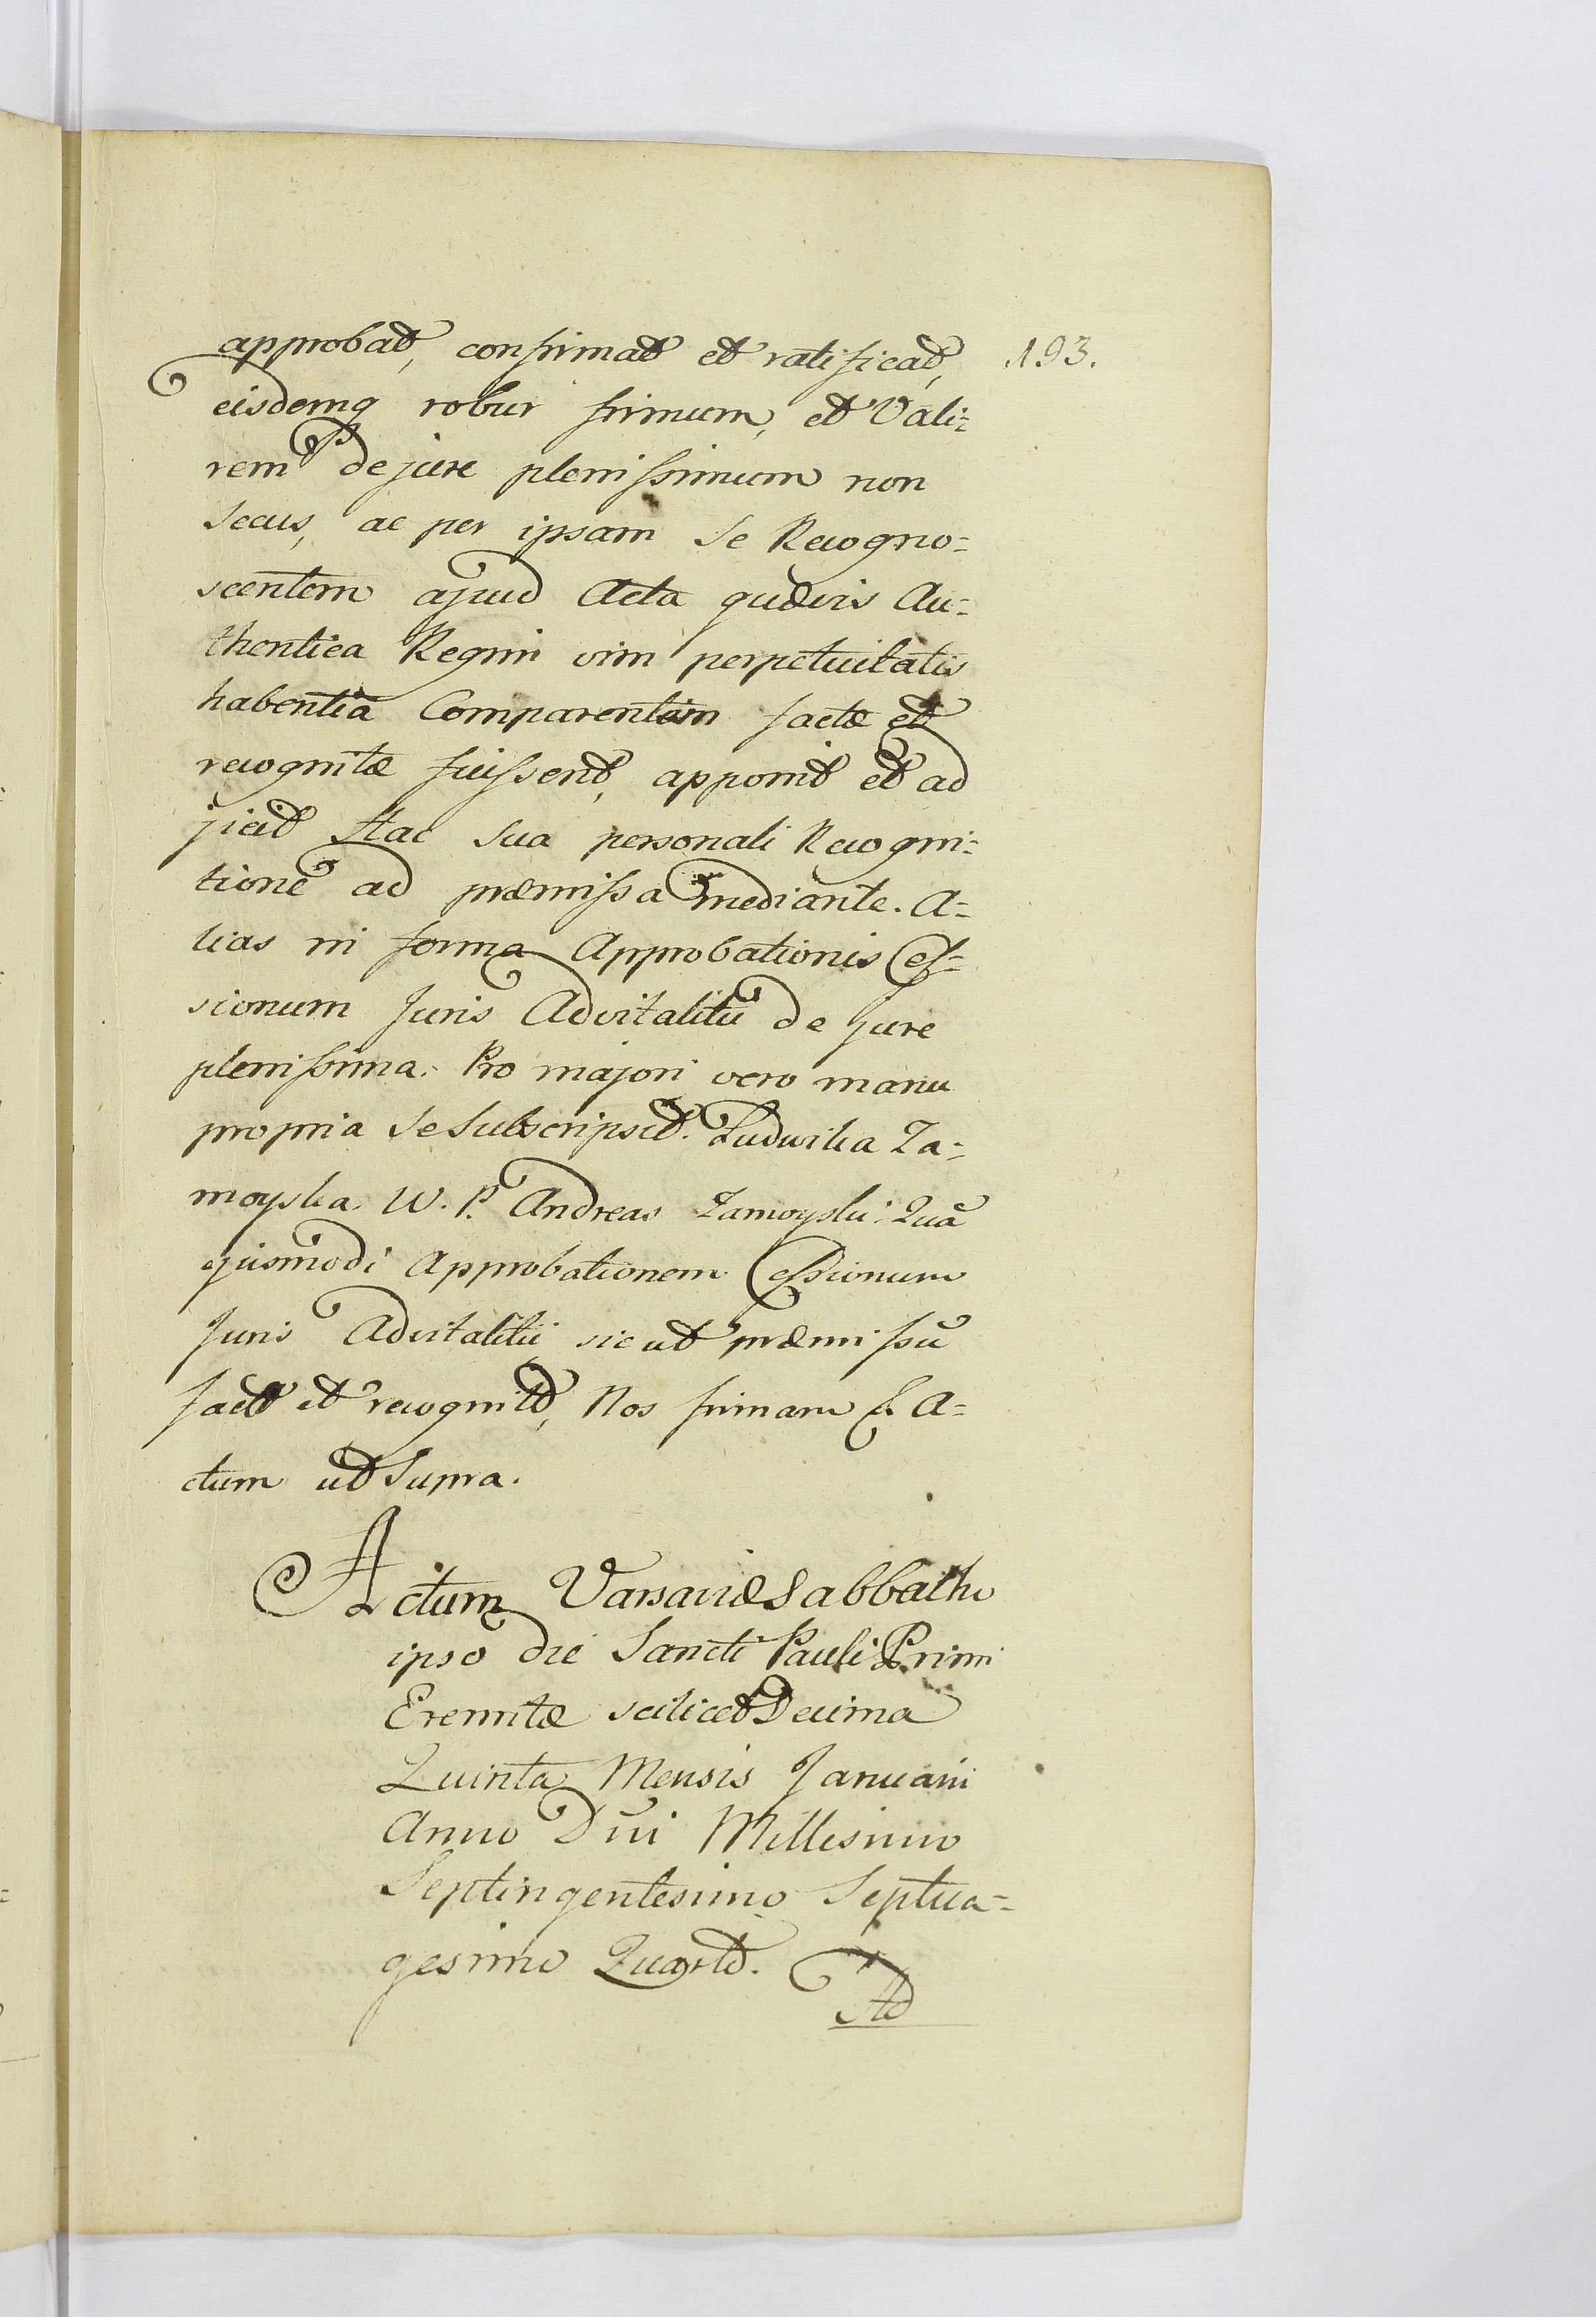 193.
approbat, confirmat et ratificat,
eisdemq robur firmum, et Vali=
rem de jure plenissimum non
secus, ac per ipsam se Recogno=
scentem apud Acta quævis Au=
thentica Regni vim perpetuitatis
habentia Comparentem factæ et
recognitæ fuissent, apponit et ad
jicit Hac sua personali Recogni=
tione ad præmissa mediante. A=
lias in forma Approbationis Ces=
sionum Juris Advitalitii de Jure
plenissima. Pro majori vero manu
propria se Subscripsit. Ludwika Za=
moyska. W. P. Andreas Zamoyski. Quā
ejusmodi Approbationem Cessionum
Juris Advitalitii, sic ut præmissū
fact et recognit, Nos firmam A=
ctum ut Supra.
Actum Varsaviæ Sabbatho
ipso die Sancti Pauli Primi
Eremitæ scilicet Decima
Quinta Mensis Januarii
Anno Dn̄i Millesimo
Septingentesimo Septua=
gesimo Quarto.
Ad